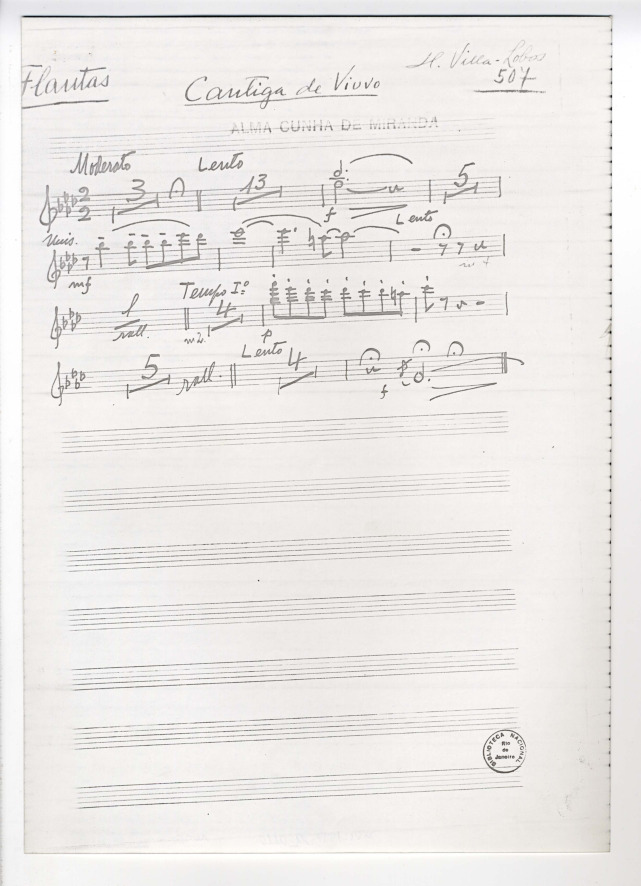 H. Villa-Lobos
Flautas
507
Cantiga de Viuvo
ALMA CUNHA DE MIRANDA
Moderato Lento
2 2 3 13 f 5
Unis. Lento
mf
1 Tempo Iº 4
rall. p
Lento
5 rall. 4
f
BIBLIOTECA NACIONAL
Rio
de
Janeiro